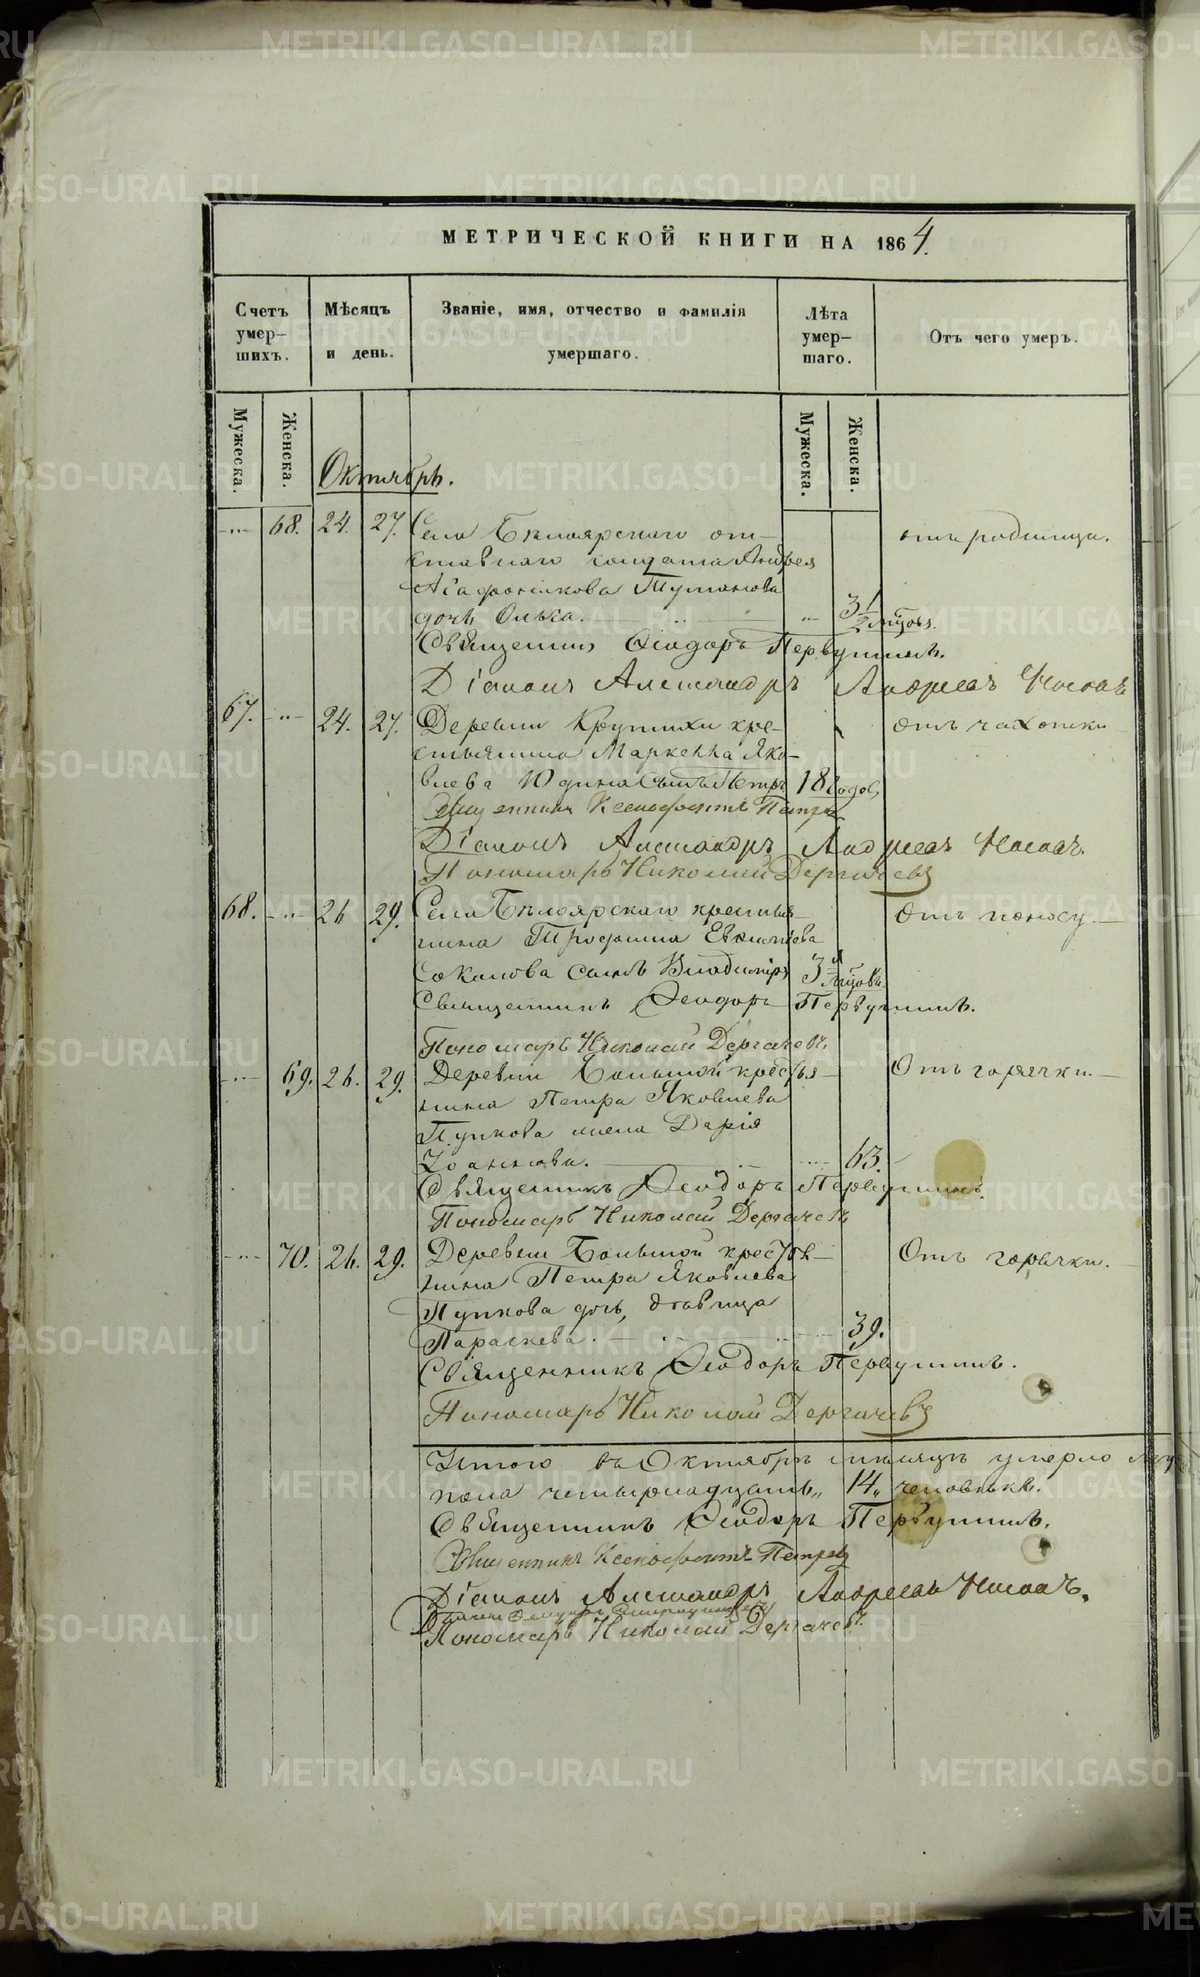 МЕТРИЧЕСКОЙ КНИГИ НА 1864.
Счетъ умер-шихъ.
Мѣсяцъ и день.
Званіе, имя, отчество и фамилія умершаго.
Лѣта умер-шаго.
Отъ чего умеръ.
Мужеска.
Женска.
Мужеска.
Женска.
Октябрь.
68. 24. 27. Села Бѣлоярскаго от-
отъ родимца.
ставнаго солдата Андрея
Агафоникова Туманова
дочь Ольга. 3 1/2
Священникъ Ѳеодоръ Первушинъ.
Діаконъ Александръ Андреевъ Носовъ
67. 24. 27. Деревни Крутихи кре-
отъ чахотки
стьянина Маркелла Яко-
влева Юдина сынъ Петръ 18 годов,
Священникъ Ксенофонтъ Петровъ
Діаконъ Александръ Андреевъ Носовъ.
Пономарь Николай Дергачевъ
68. 26 29. Села Бѣлоярскаго крестья-
Отъ поносу.
нина Трофима Евкипіева
Соколова сынъ Владиміръ 3
Священникъ Ѳеодоръ Первушинъ.
Пономарь Николай Дергачевъ.
69. 26. 29. Деревни Большой крестья-
Отъ горячки.
нина Петра Яковлева
Пупкова жена Дарія
Іоаннова. 63.
Священникъ Ѳеодоръ Первушинъ.
Пономарь Николай Дергачевъ
70. 26. 29. Деревни Большой крестья-
Отъ горячки.
нина Петра Яковлева
Пупкова дочь, дѣвица
Параскева. 39.
Священникъ Ѳеодоръ Первушинъ.
Пономарь Николай Дергачевъ
Итого въ Октябрѣ мѣсяцѣ умерло
пола четырнадцать„ 14„ человѣкъ.
Священникъ Ѳеодоръ Первушинъ.
Священникъ Ксенофонтъ Петровъ
Діаконъ Александръ Андреевъ Носовъ.
Пономарь Николай Дергачевъ.
METRIKI.GASO-URAL.RU